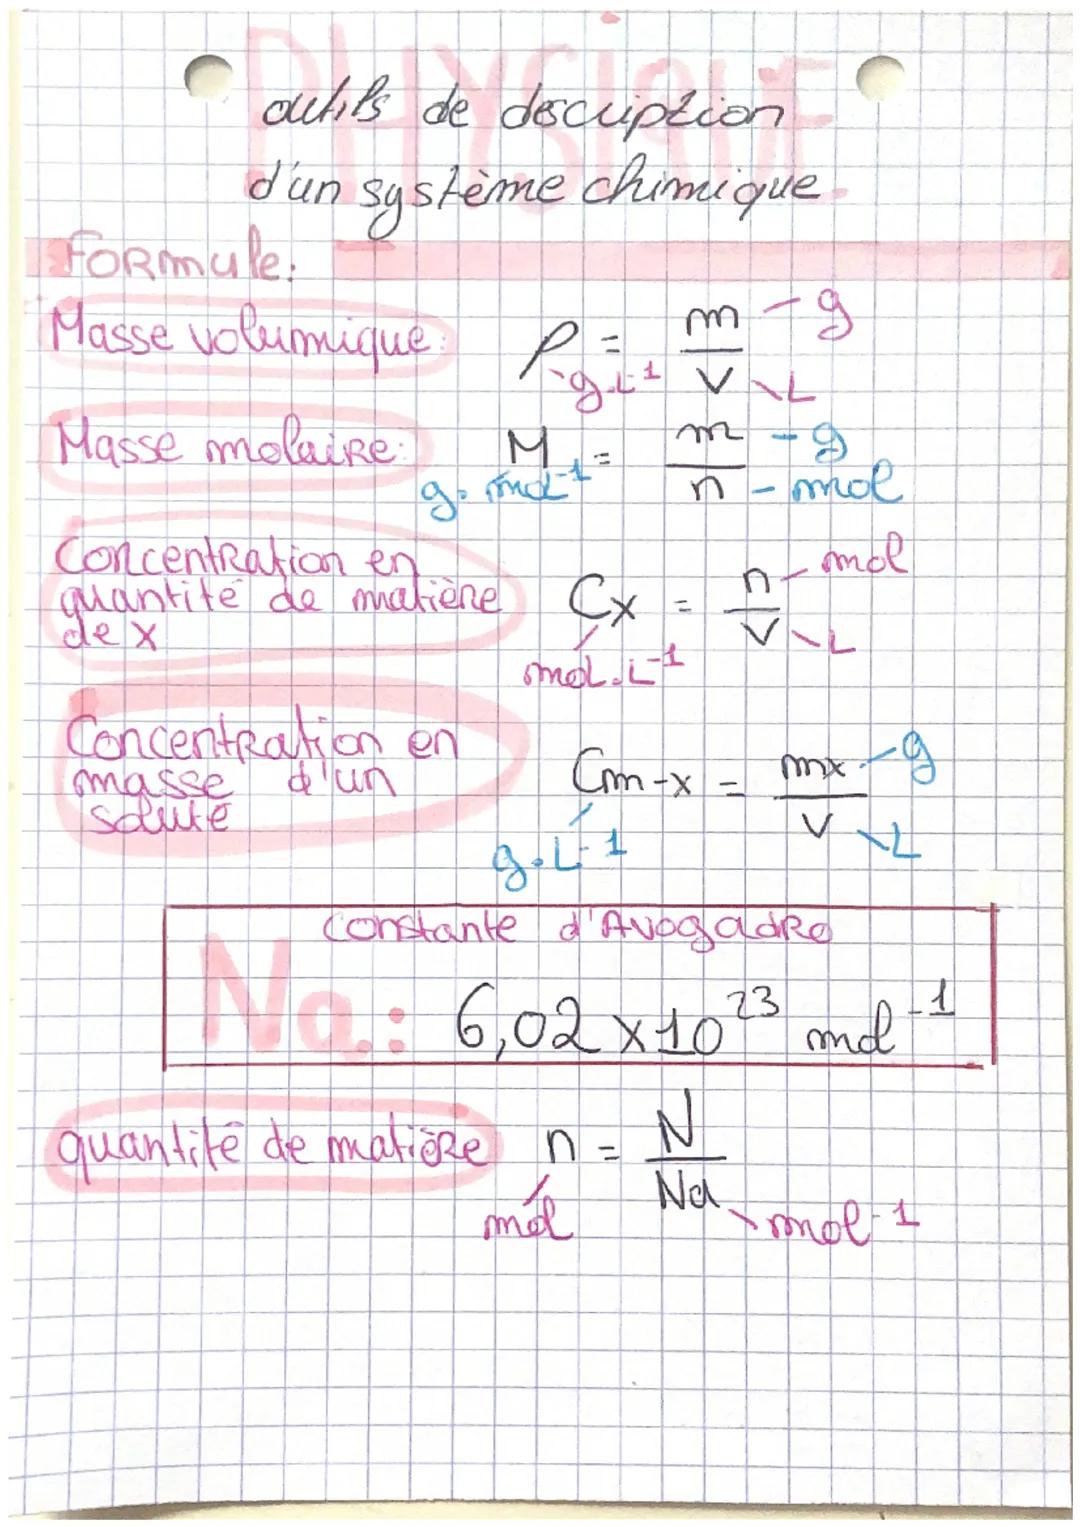 PHYSIQUE
outils de description
d'un système chimique
FORmule:
Masse volumique: ρ = m/V - g
g.L-1 L
Masse molaire: M = m/n - g
g. mol-1 - mol
Concentration en
quantité de matière Cx = n/V mol
de x L
mol.L-1
Concentration en
masse d'un Cm-x = mx/V g
soluté L
g.L-1
Constante d'Avogadro
Na: 6,02 x 10^23 mol^-1
quantité de matière n = N/Na
mol mol-1